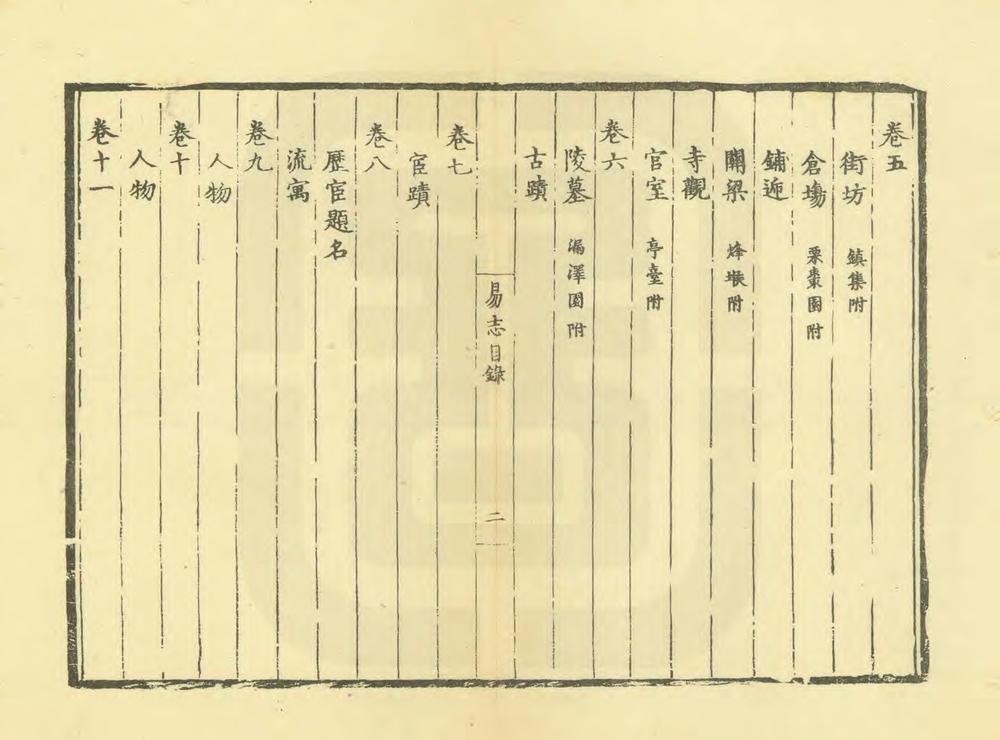 卷五
街坊 鎮集附
倉塲 栗棗園附
鋪遞
關梁 烽堠附
寺觀
官室 亭臺附
卷六
陵墓 漏澤園附
古蹟
易志目錄 二
卷七
宦蹟
卷八
歷宦題名
流寓
卷九
人物
卷十
人物
卷十一